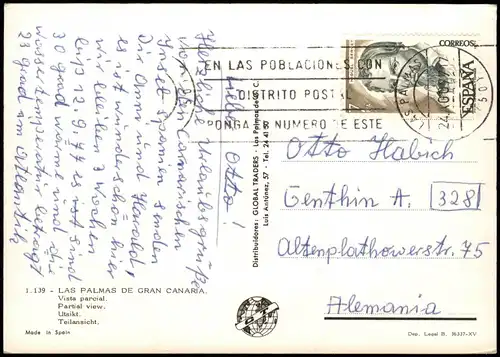 Lieber Otto!
Herzliche Urlaubsgrüße
von den Canarischen
Inseln senden
Dir Anni und Harald,
es ist wunderschön hier
wir bleiben 3 Wochen
bis 12.9.77 es sind
30 grad wärme und die
wassertemperatur beträgt
23 grad am Atlantik
1.139 - LAS PALMAS DE GRAN CANARIA.
Vista parcial.
Partial view.
Utsikt.
Teilansicht.
Made in Spain
Distribuidores: GLOBAL TRADERS - Las Palmas de G. C.
Luis Antúnez, 57 - Tel. 24 41
EN LAS POBLACIONES CON
DISTRITO POSTAL
PONGA EL NUMERO DE ESTE
CORREOS
ESPAÑA
7
LAS PALMAS
Otto Habich
Genthin A. 328
Altenplathowerstr. 75
Alemania
Dep. Legal B. 36337-XV